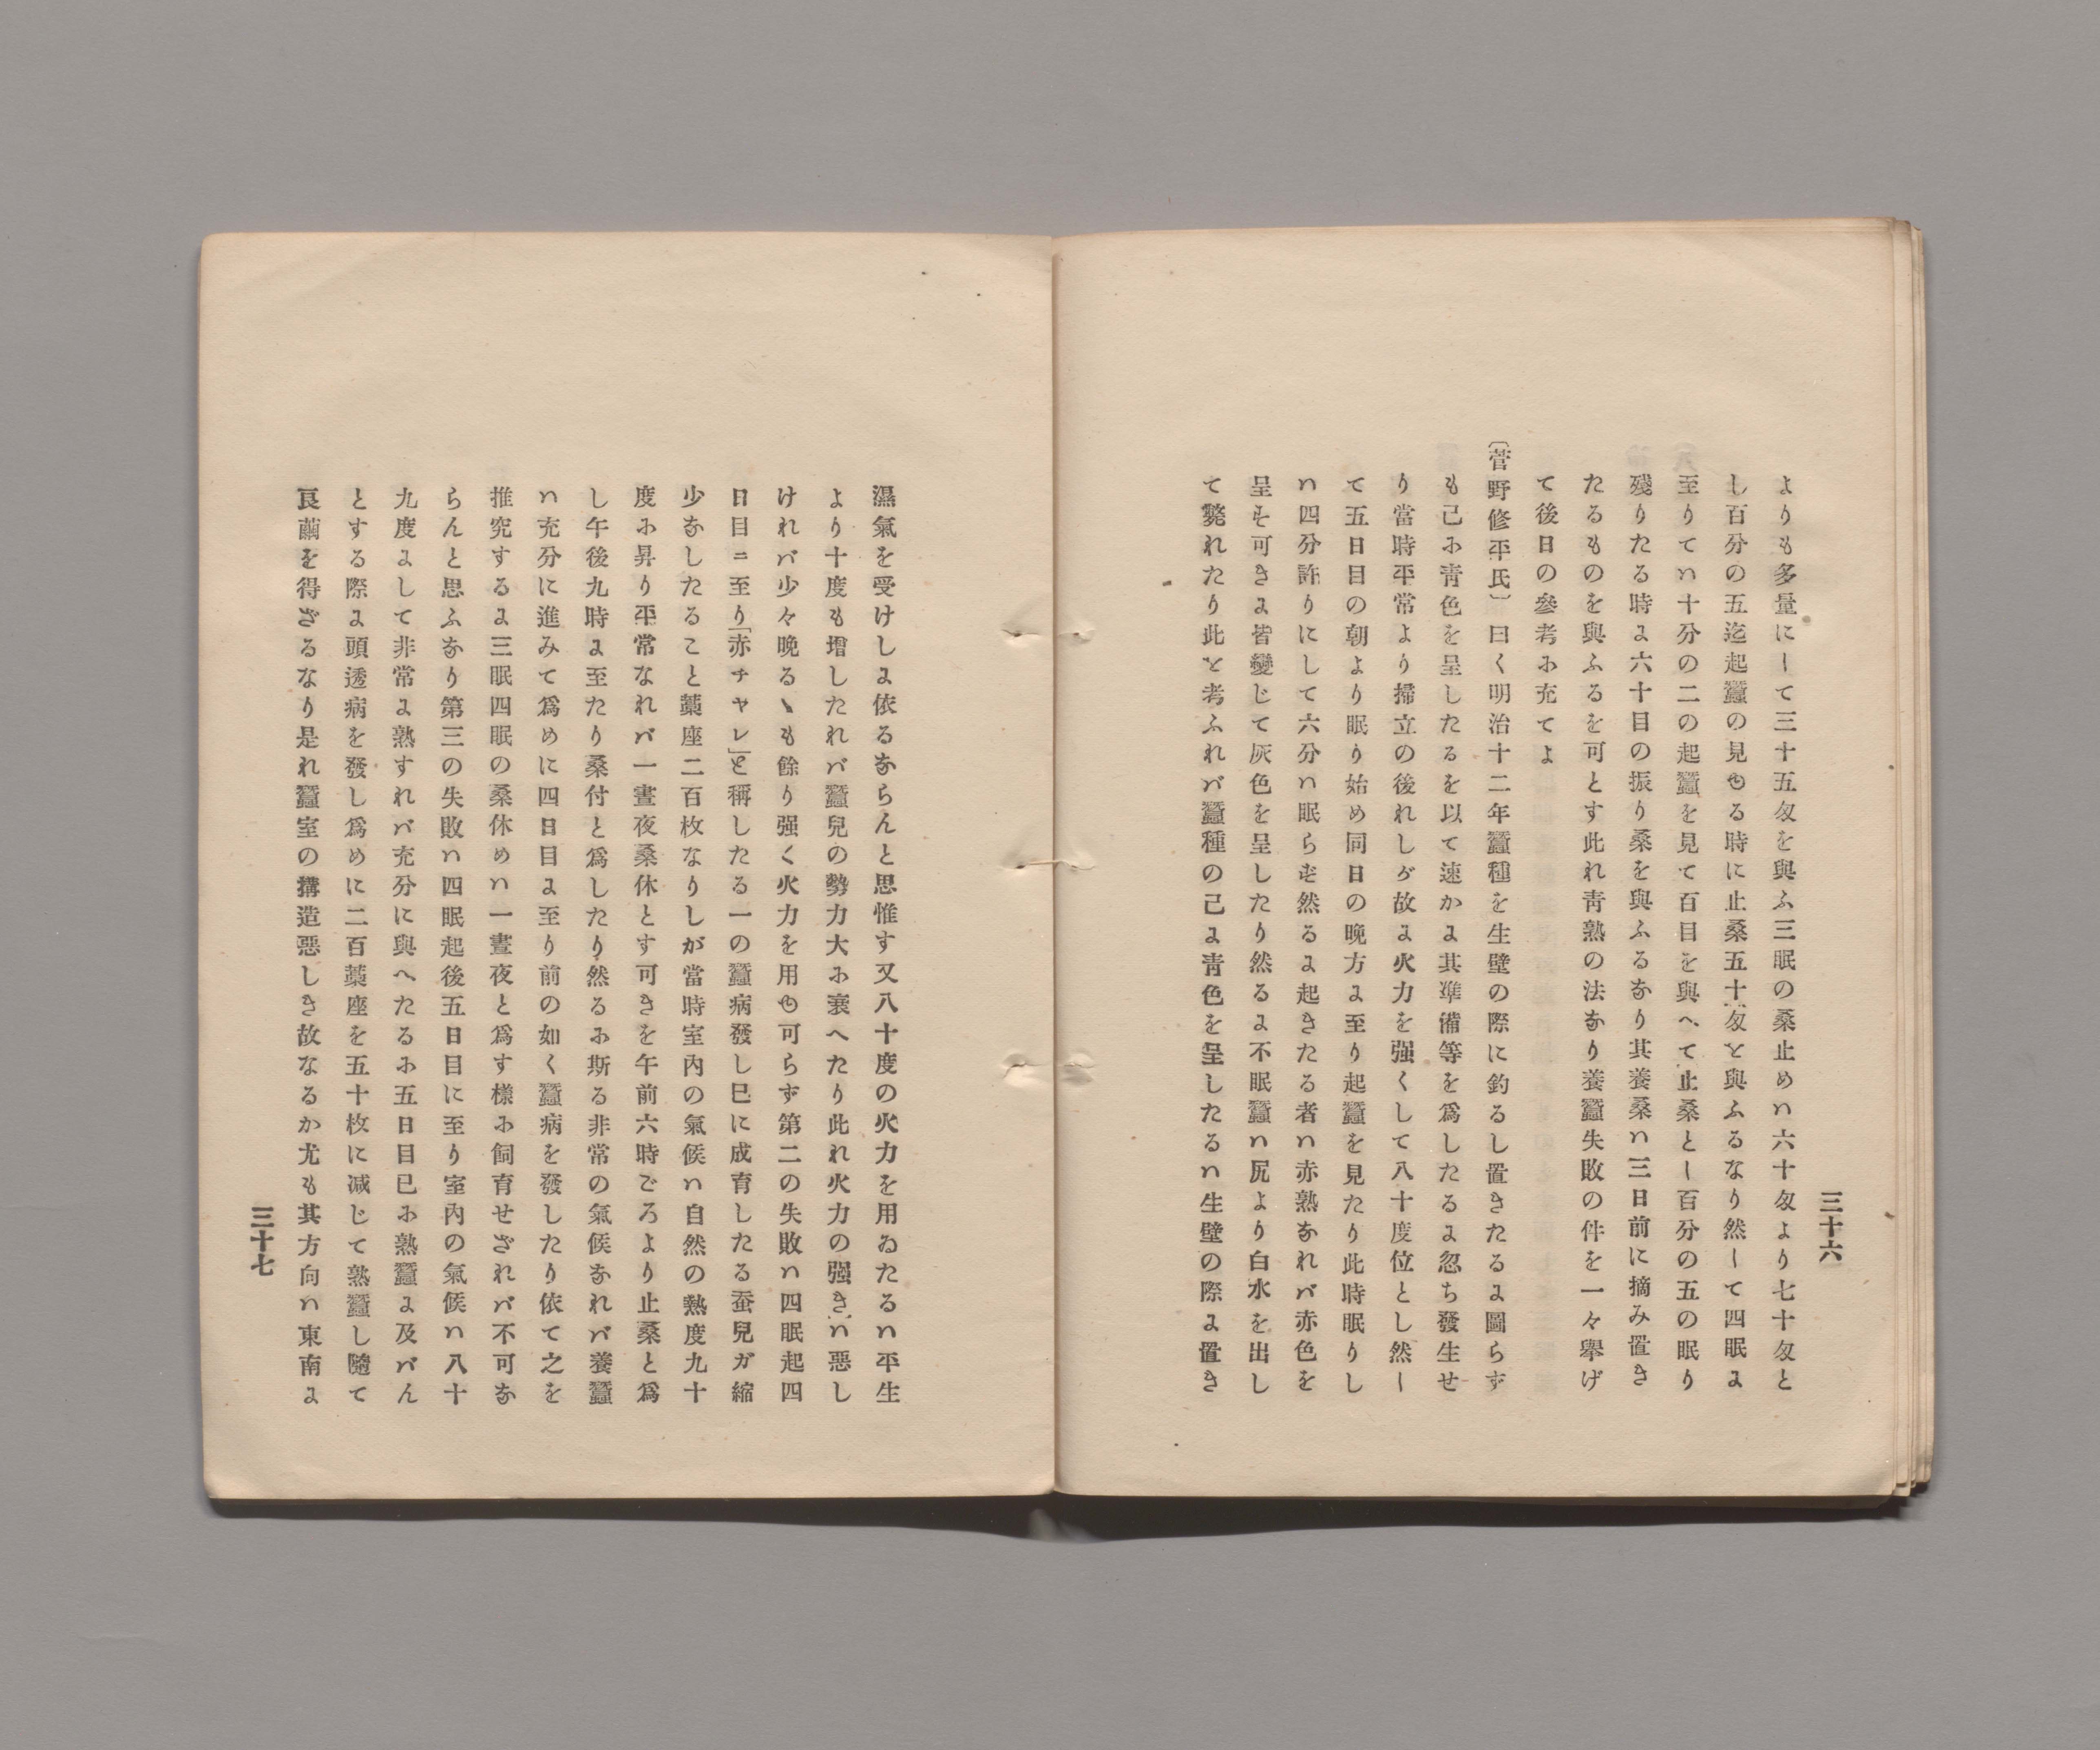 三十六
よりも多量にして三十五匁を與ふ三眠の桑止めハ六十匁より七十匁と
し百分の五迄起蠶の見ゆる時に止桑五十匁を與ふるなり然して四眠に
至りてハ十分の二の起蠶を見て百目を與へて止桑とし百分の五の眠り
殘りたる時に六十目の振り桑を與ふるなり其養桑ハ三日前に摘み置き
たるものを與ふるを可とす此れ靑熟の法なり養蠶失敗の件を一々擧げ
て後日の參考に充てよ
〔菅野修平氏〕曰く明治十二年蠶種を生壁の際に釣るし置きたるに圖らず
も己に靑色を呈したるを以て速かに其準備等を爲したるに忽ち發生せ
り當時平常より掃立の後れしが故に火力を强くして八十度位とし然し
て五日目の朝より眠り始め同日の晩方に至り起蠶を見たり此時眠りし
ハ四分許りにして六分ハ眠らず然るに起きたる者ハ赤熟なれバ赤色を
呈す可きに皆變じて灰色を呈したり然るに不眠蠶ハ尻より白水を出し
て斃れたり此を考ふれバ蠶種の己に靑色を呈したるハ生壁の際に置き
濕氣を受けしに依るならんと思惟す又八十度の火力を用ゐたるハ平生
より十度も增したれバ蠶兒の勢力大に衰へたり此れ火力の强きハ惡し
けれバ少々晩るゝも餘り强く火力を用ゆ可らず第二の失敗ハ四眠起四
日目ニ至り「赤チヤレ」と稱したる一の蠶病發し巳に成育したる蚕兒ガ縮
少なしたること藁座二百枚なりしが當時室內の氣候ハ自然の熱度九十
度に昇り平常なれバ一晝夜桑休とす可きを午前六時ごろより止桑と爲
し午後九時に至たり桑付と爲したり然るに斯る非常の氣候なれバ養蠶
ハ充分に進みて爲めに四日目に至り前の如く蠶病を發したり依て之を
推究するに三眠四眠の桑休めハ一晝夜と爲す樣に飼育せざれバ不可な
らんと思ふなり第三の失敗ハ四眠起後五日目に至り室內の氣候ハ八十
九度にして非常に熟すれバ充分に與へたるに五日目已に熟蠶に及バん
とする際に頭透病を發し爲めに二百藁座を五十枚に減じて熟蠶し隨て
良繭を得ざるなり是れ蠶室の搆造惡しき故なるか尤も其方向ハ東南に
三十七